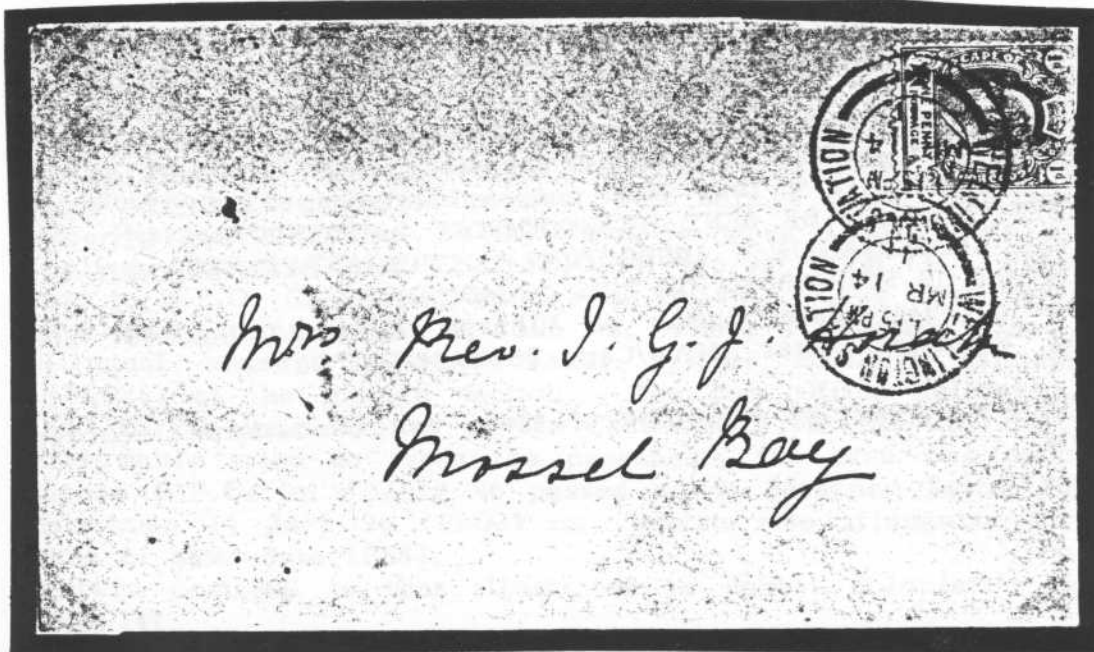 CAPE OF
PENNY
1d
1d
WELLINGTON STATION
MR 14
WELLINGTON STATION
Mrs. Rev. I. G. J.
Mossel Bay